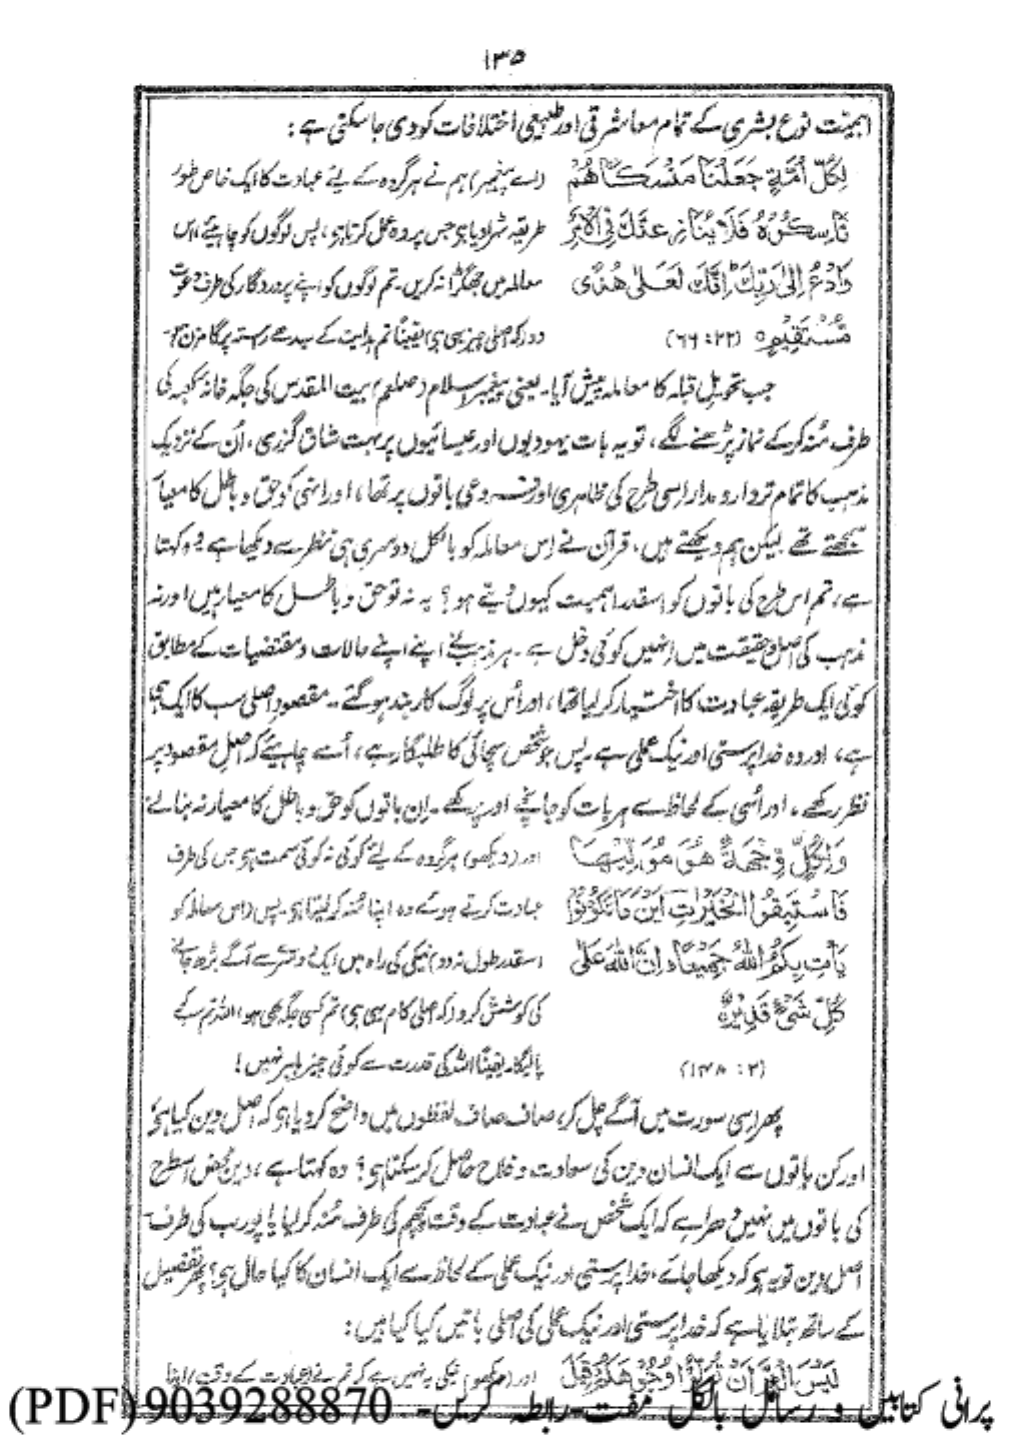 ۱۳۵
اہمیت نوع بشری کے تمام معاشرتی اور طبیعی اختلافات کو دی جا سکتی ہے :
لِكُلِّ أُمَّةٍ جَعَلْنَا مَنْسَكًا هُمْ (اے پیغمبر) ہم نے ہر گروہ کے لیے عبادت کا ایک خاص طور
نَاسِكُوْهُ فَلَا يُنَازِعُنَّكَ فِي الْأَمْرِ طریقہ ٹھہرا دیا ہی جس پر وہ عمل کرتا ہی، پس لوگوں کو چاہیئے، اس
وَادْعُ إِلَى رَبِّكَ إِنَّكَ لَعَلَى هُدًى معاملہ میں جھگڑا نہ کریں۔ تم لوگوں کو اپنے پروردگار کی طرف دعوت
مُّسْتَقِيْمٍ (۲۲ : ۶۶) دو (کہ اصلی چیز یہی ہی) یقیناً تم ہدایت کے سیدھے رستہ پر گامزن ہو۔
جب تحویلِ قبلہ کا معاملہ پیش آیا۔ یعنی پیغمبر اسلام (صلعم) بیت المقدس کی جگہ خانہ کعبہ کی
طرف مُنہ کرکے نماز پڑھنے لگے، تو یہ بات یہودیوں اور عیسائیوں پر بہت شاق گزری، اُن کے نزدیک
مذہب کا تمام تر دار و مدار اسی طرح کی ظاہری اور فروعی باتوں پر تھا، اور انہی کو حق و باطل کا معیار
سمجھتے تھے لیکن ہم دیکھتے ہیں، قرآن نے اِس معاملہ کو بالکل دوسری ہی نظر سے دیکھا ہے وہ کہتا
ہے، تم اس طرح کی باتوں کو اسقدر اہمیت کیوں دیتے ہو؟ یہ نہ تو حق و باطل کا معیار ہیں اور نہ
مذہب کی اصل و حقیقت میں اِنہیں کوئی دخل ہے۔ ہر مذہب نے اپنے اپنے حالات و مقتضیات کے مطابق
کوئی ایک طریقہ عبادت کا اختیار کر لیا تھا، اور اُس پر لوگ کاربند ہو گئے۔ مقصودِ اصلی سب کا ایک ہی
ہے، اور وہ خدا پرستی اور نیک عملی ہے۔ پس جو شخص سچائی کا طلبگار ہے، اُسے چاہیئے کہ اصل مقصود پر
نظر رکھے، اور اُسی کے لحاظ سے ہر بات کو جانچے اور پرکھے۔ اِن باتوں کو حق و باطل کا معیار نہ بنا لے
وَلِكُلٍّ وِّجْهَةٌ هُوَ مُوَلِّيْهَا اور (دیکھو) ہر گروہ کے لیے کوئی نہ کوئی سمت ہی جس کی طرف
فَاسْتَبِقُوا الْخَيْرَاتِ أَيْنَ مَا تَكُوْنُوْا عبادت کرتے ہوئے وہ اپنا مُنہ کر لیتا ہی۔ پس (اس معاملہ کو
يَأْتِ بِكُمُ اللهُ جَمِيْعًا إِنَّ اللهَ عَلَى اسقدر طول نہ دو) نیکی کی راہ میں ایک دوسرے سے آگے بڑھ جانے
كُلِّ شَيْءٍ قَدِيْرٌ کی کوشش کرو (کہ اصلی کام یہی ہی) تم کسی جگہ بھی ہو، اللہ تم سب کو
(۲ : ۱۴۸) پالیگا۔ یقیناً اللہ کی قدرت سے کوئی چیز باہر نہیں !
پھر اسی سورت میں آگے چل کر، صاف صاف لفظوں میں واضح کر دیا ہی کہ اصل دین کیا ہی؟
اور کن باتوں سے ایک انسان دین کی سعادت و فلاح حاصل کر سکتا ہی؟ وہ کہتا ہے، دین محض اسطرح
کی باتوں میں نہیں دھرا ہے کہ ایک شخص نے عبادت کے وقت پچھم کی طرف مُنہ کر لیا یا پورب کی طرف۔
اصل دین تو یہ ہی کہ دیکھا جائے، خدا پرستی اور نیک عملی کے لحاظ سے ایک انسان کا کیا حال ہی؟ پھر تفصیل
کے ساتھ بتلایا ہے کہ خدا پرستی اور نیک عملی کی اصلی باتیں کیا کیا ہیں :
لَيْسَ الْبِرَّ أَنْ تُوَلُّوْا وُجُوْهَكُمْ قِبَلَ اور (دیکھو) نیکی یہ نہیں ہے کہ تم نے (عبادت کے وقت) اپنا
پرانی کتابیں و رسائل بالکل مفت۔ رابطہ کریں۔ 9039288870 (PDF)